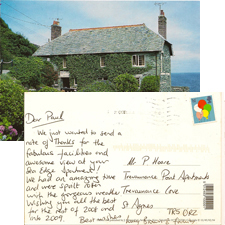 Dear Paul
We just wanted to send a
note of Thanks for the
fabulous facilities and
awesome view at your
Sea Edge Apartment!
We had an amazing time
and were spoilt rotten
with the gorgeous weather
Wishing you all the best
for the rest of 2008 and
into 2009.
Best wishes
Mr P Hoare
Trevaunance Point Apartments
Trevaunance Cove
St Agnes
TR5 0RZ